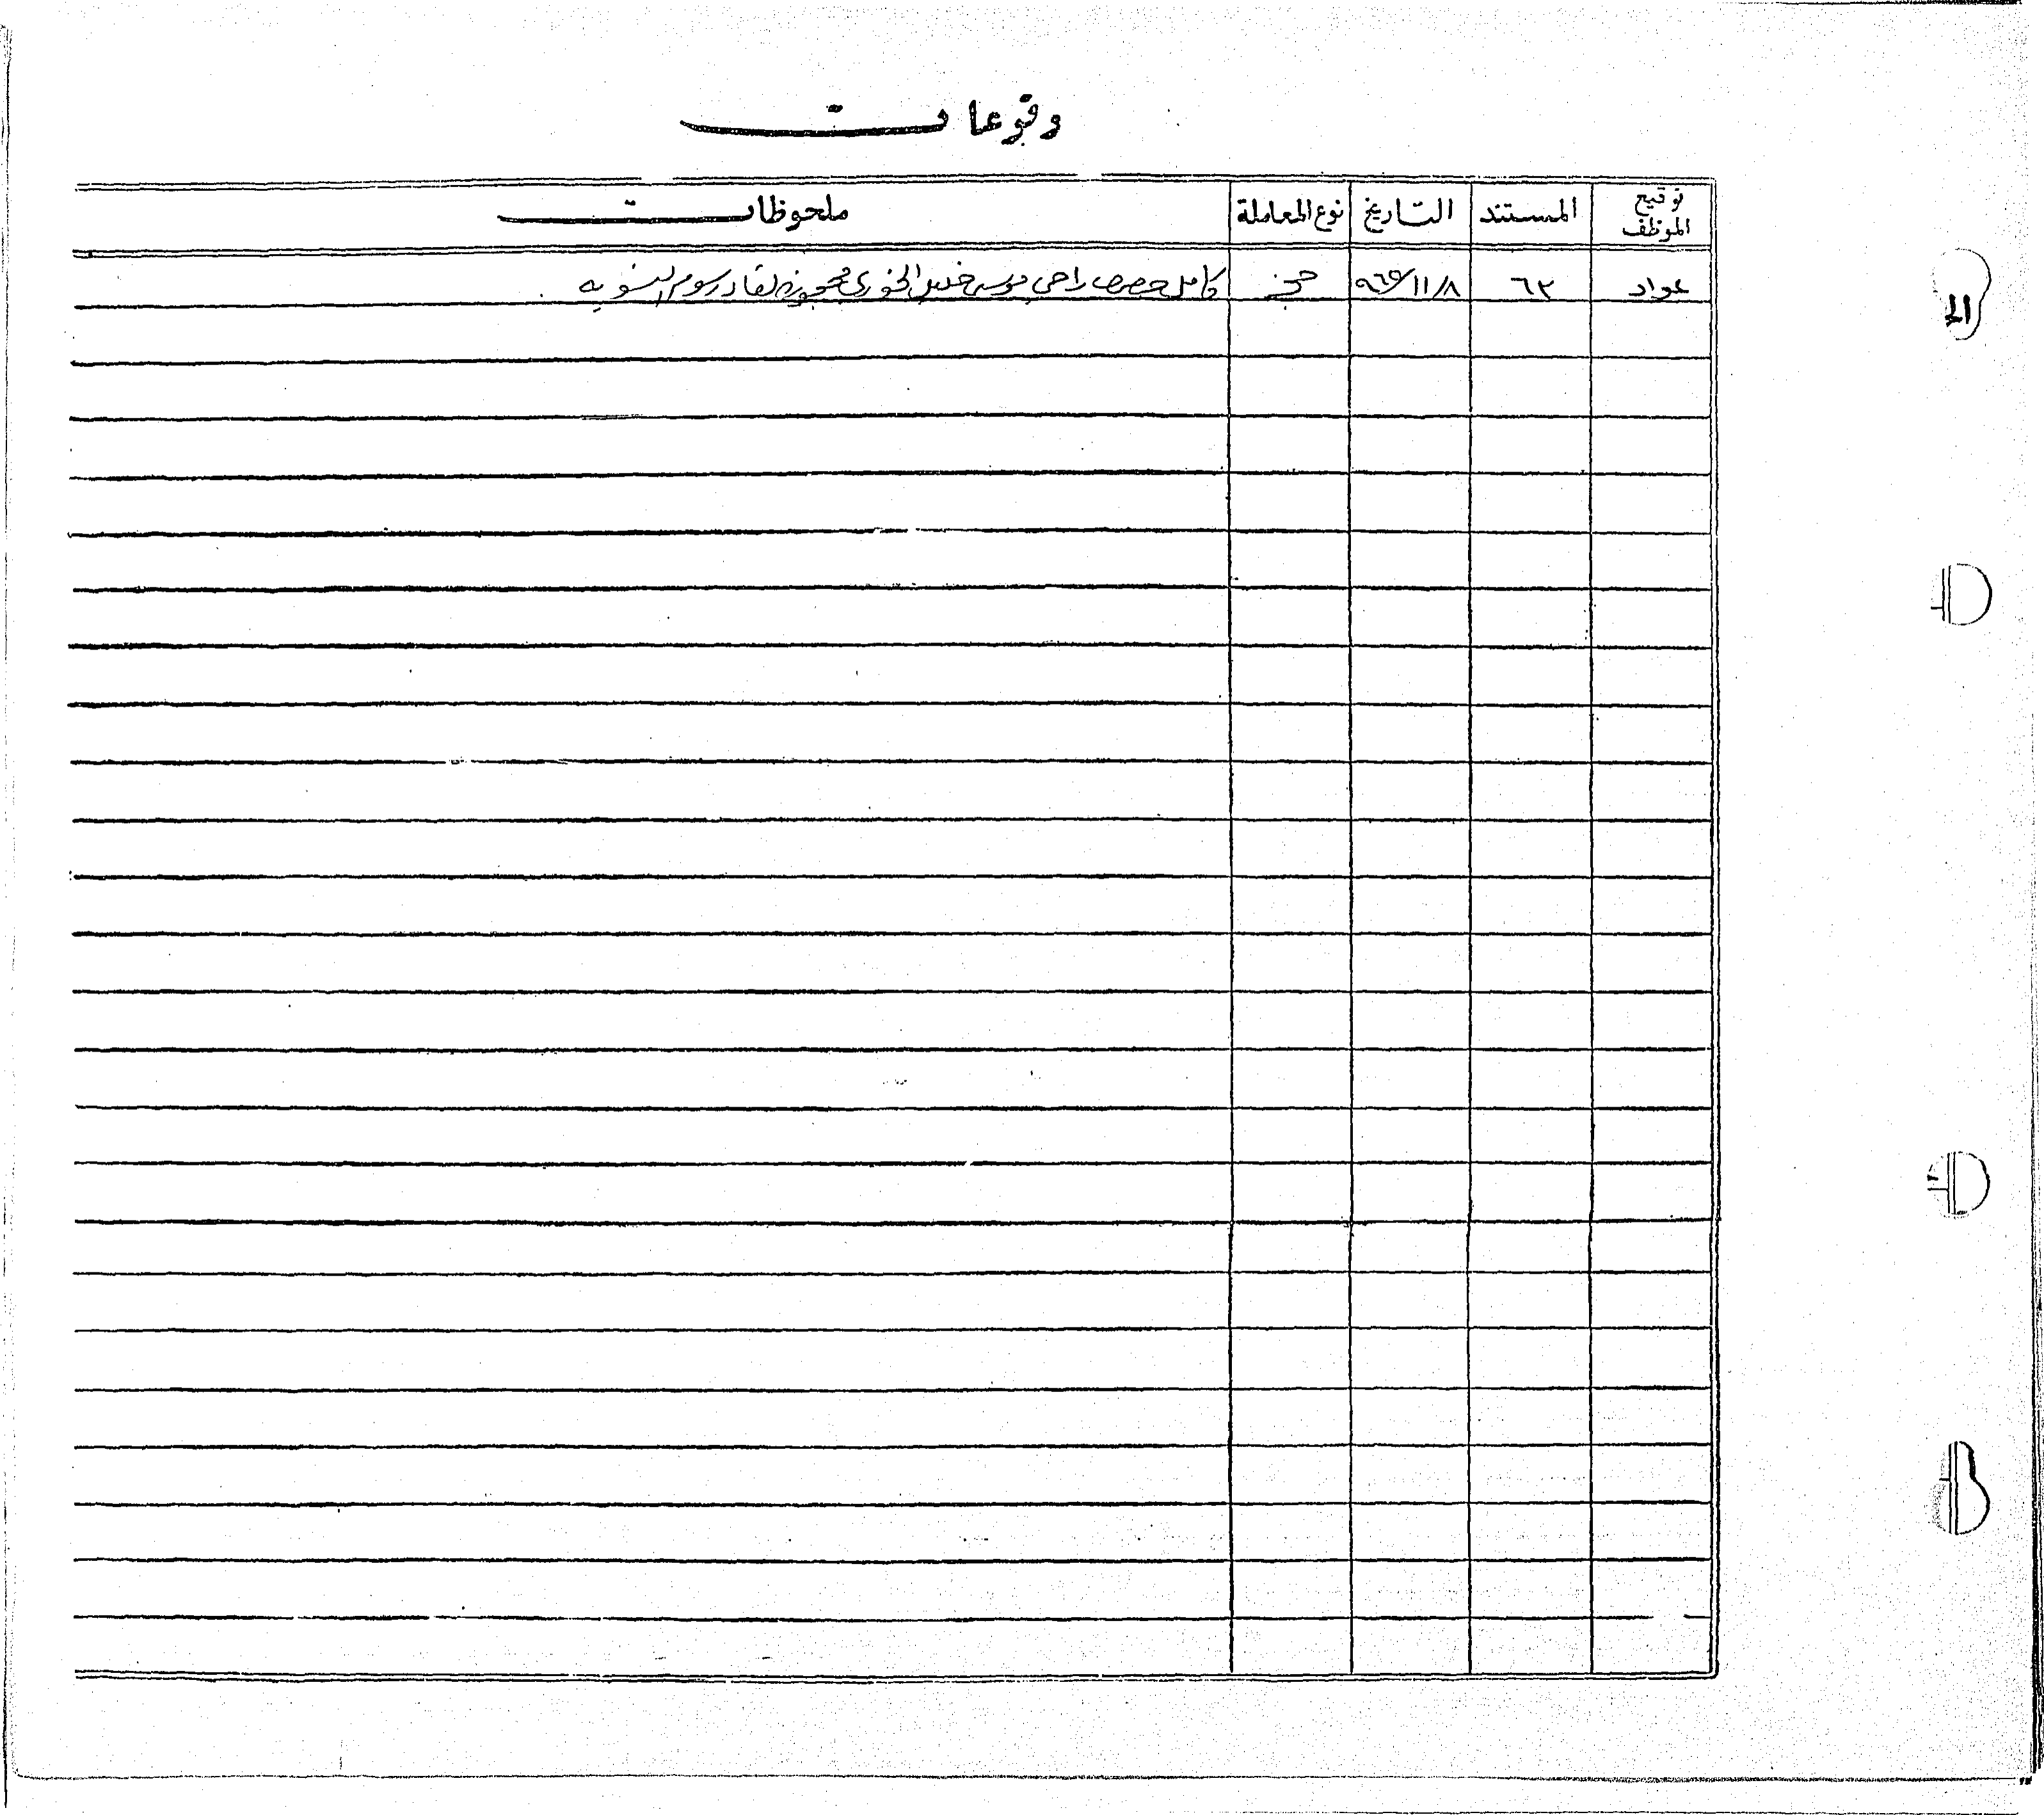 وقوعات
توقيع الموظف المستند التاريخ نوع المعاملة ملحوظات
عواد ٦٣ ٩٦٥/١١/٨ حجز كامل حصص راحي موسى خليل الخوري محجوزه لقاء رسوم التسويه